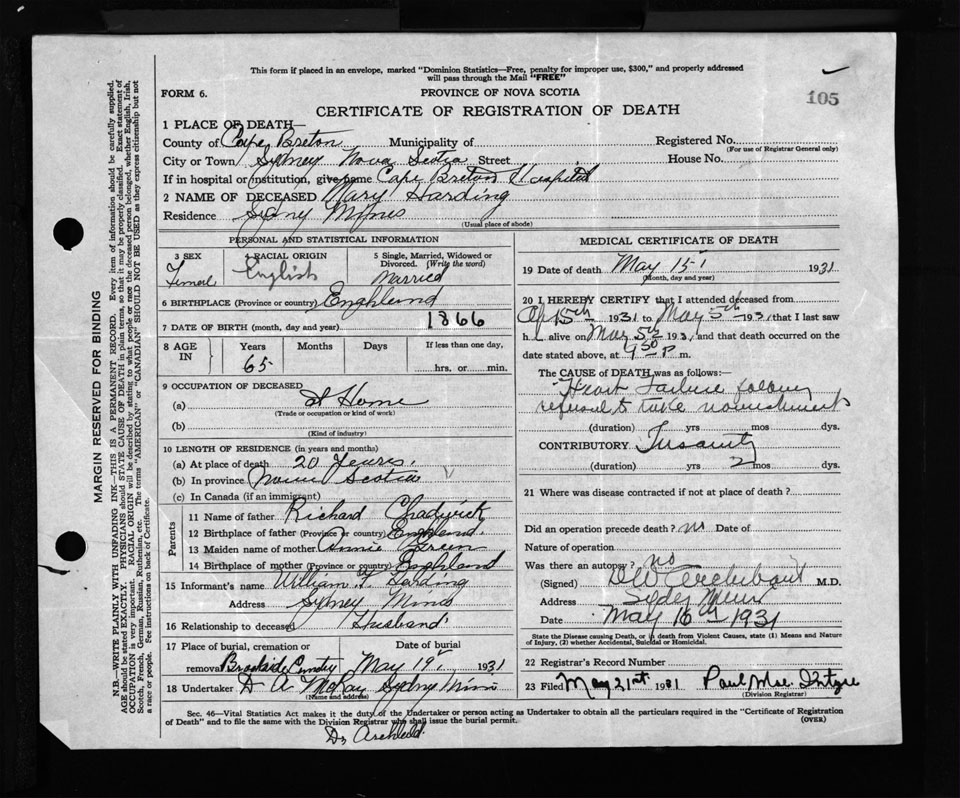 This form if placed in an envelope, marked "Dominion Statistics—Free, penalty for improper use, $300," and properly addressed
will pass through the Mail "FREE"
FORM 6.
PROVINCE OF NOVA SCOTIA
105
CERTIFICATE OF REGISTRATION OF DEATH
1 PLACE OF DEATH—
County of Cape Breton Municipality of Registered No.
(For use of Registrar General only)
City or Town Sydney Nova Scotia Street House No.
If in hospital or institution, give name Cape Breton Hospital
2 NAME OF DECEASED Mary Harding
Residence Sydney Mines
(Usual place of abode)
PERSONAL AND STATISTICAL INFORMATION
3 SEX 4 RACIAL ORIGIN 5 Single, Married, Widowed or Divorced. (Write the word)
Femal English Married
6 BIRTHPLACE (Province or country) Enghland
7 DATE OF BIRTH (month, day and year) 1866
8 AGE IN Years Months Days If less than one day,
65 hrs. or min.
9 OCCUPATION OF DECEASED
(a) at Home
(Trade or occupation or kind of work)
(b)
(Kind of industry)
10 LENGTH OF RESIDENCE (in years and months)
(a) At place of death 20 Yeares.
(b) In province Nova Scotia
(c) In Canada (if an immigrant)
Parents
11 Name of father Richard Chadwick
12 Birthplace of father (Province or country) Enghland.
13 Maiden name of mother Annie Green
14 Birthplace of mother (Province or country) Enghland
15 Informant's name William Harding
Address Sydney Mines
16 Relationship to deceased Husband
17 Place of burial, cremation or Date of burial
removal Brookside Cemetry May 19 1931
18 Undertaker D A McKay Sydney Mines
(Name and address)
MEDICAL CERTIFICATE OF DEATH
19 Date of death May 15 1931
(Month, day and year)
20 I HEREBY CERTIFY that I attended deceased from
Ap 15th 1931 to May 5th 1931, that I last saw
h alive on May 5th 1931, and that death occurred on the
date stated above, at 9 30 P m.
The CAUSE OF DEATH was as follows:
Heart Failure following
refusal to take nourishment
(duration) yrs mos dys.
CONTRIBUTORY Insanity
(duration) yrs 2 mos dys.
21 Where was disease contracted if not at place of death?
Did an operation precede death? no Date of
Nature of operation
Was there an autopsy? no
(Signed) Archibald M.D.
Address Sydney Mines
Date May 16th 1931
State the Disease causing Death, or in death from Violent Causes, state (1) Means and Nature
of Injury, (2) whether Accidental, Suicidal or Homicidal.
22 Registrar's Record Number
23 Filed May 21st 1931 Paul
(Division Registrar)
Sec. 46—Vital Statistics Act makes it the duty of the Undertaker or person acting as Undertaker to obtain all the particulars required in the "Certificate of Registration
of Death" and to file the same with the Division Registrar who shall issue the burial permit. (OVER)
Dr Archibald.
MARGIN RESERVED FOR BINDING
N.B.—WRITE PLAINLY WITH UNFADING INK—THIS IS A PERMANENT RECORD. Every item of information should be carefully supplied.
AGE should be stated EXACTLY. PHYSICIANS should STATE CAUSE OF DEATH in plain terms, so that it may be properly classified. Exact statement of
OCCUPATION is very important. RACIAL ORIGIN will be described by stating to what people or race the deceased person belonged, whether English, Irish,
Scotch, French, German, Russian, Ruthenian, etc. The terms "AMERICAN" or "CANADIAN" SHOULD NOT BE USED as they express citizenship but not
a race or people. Fee instructions on back of Certificate.